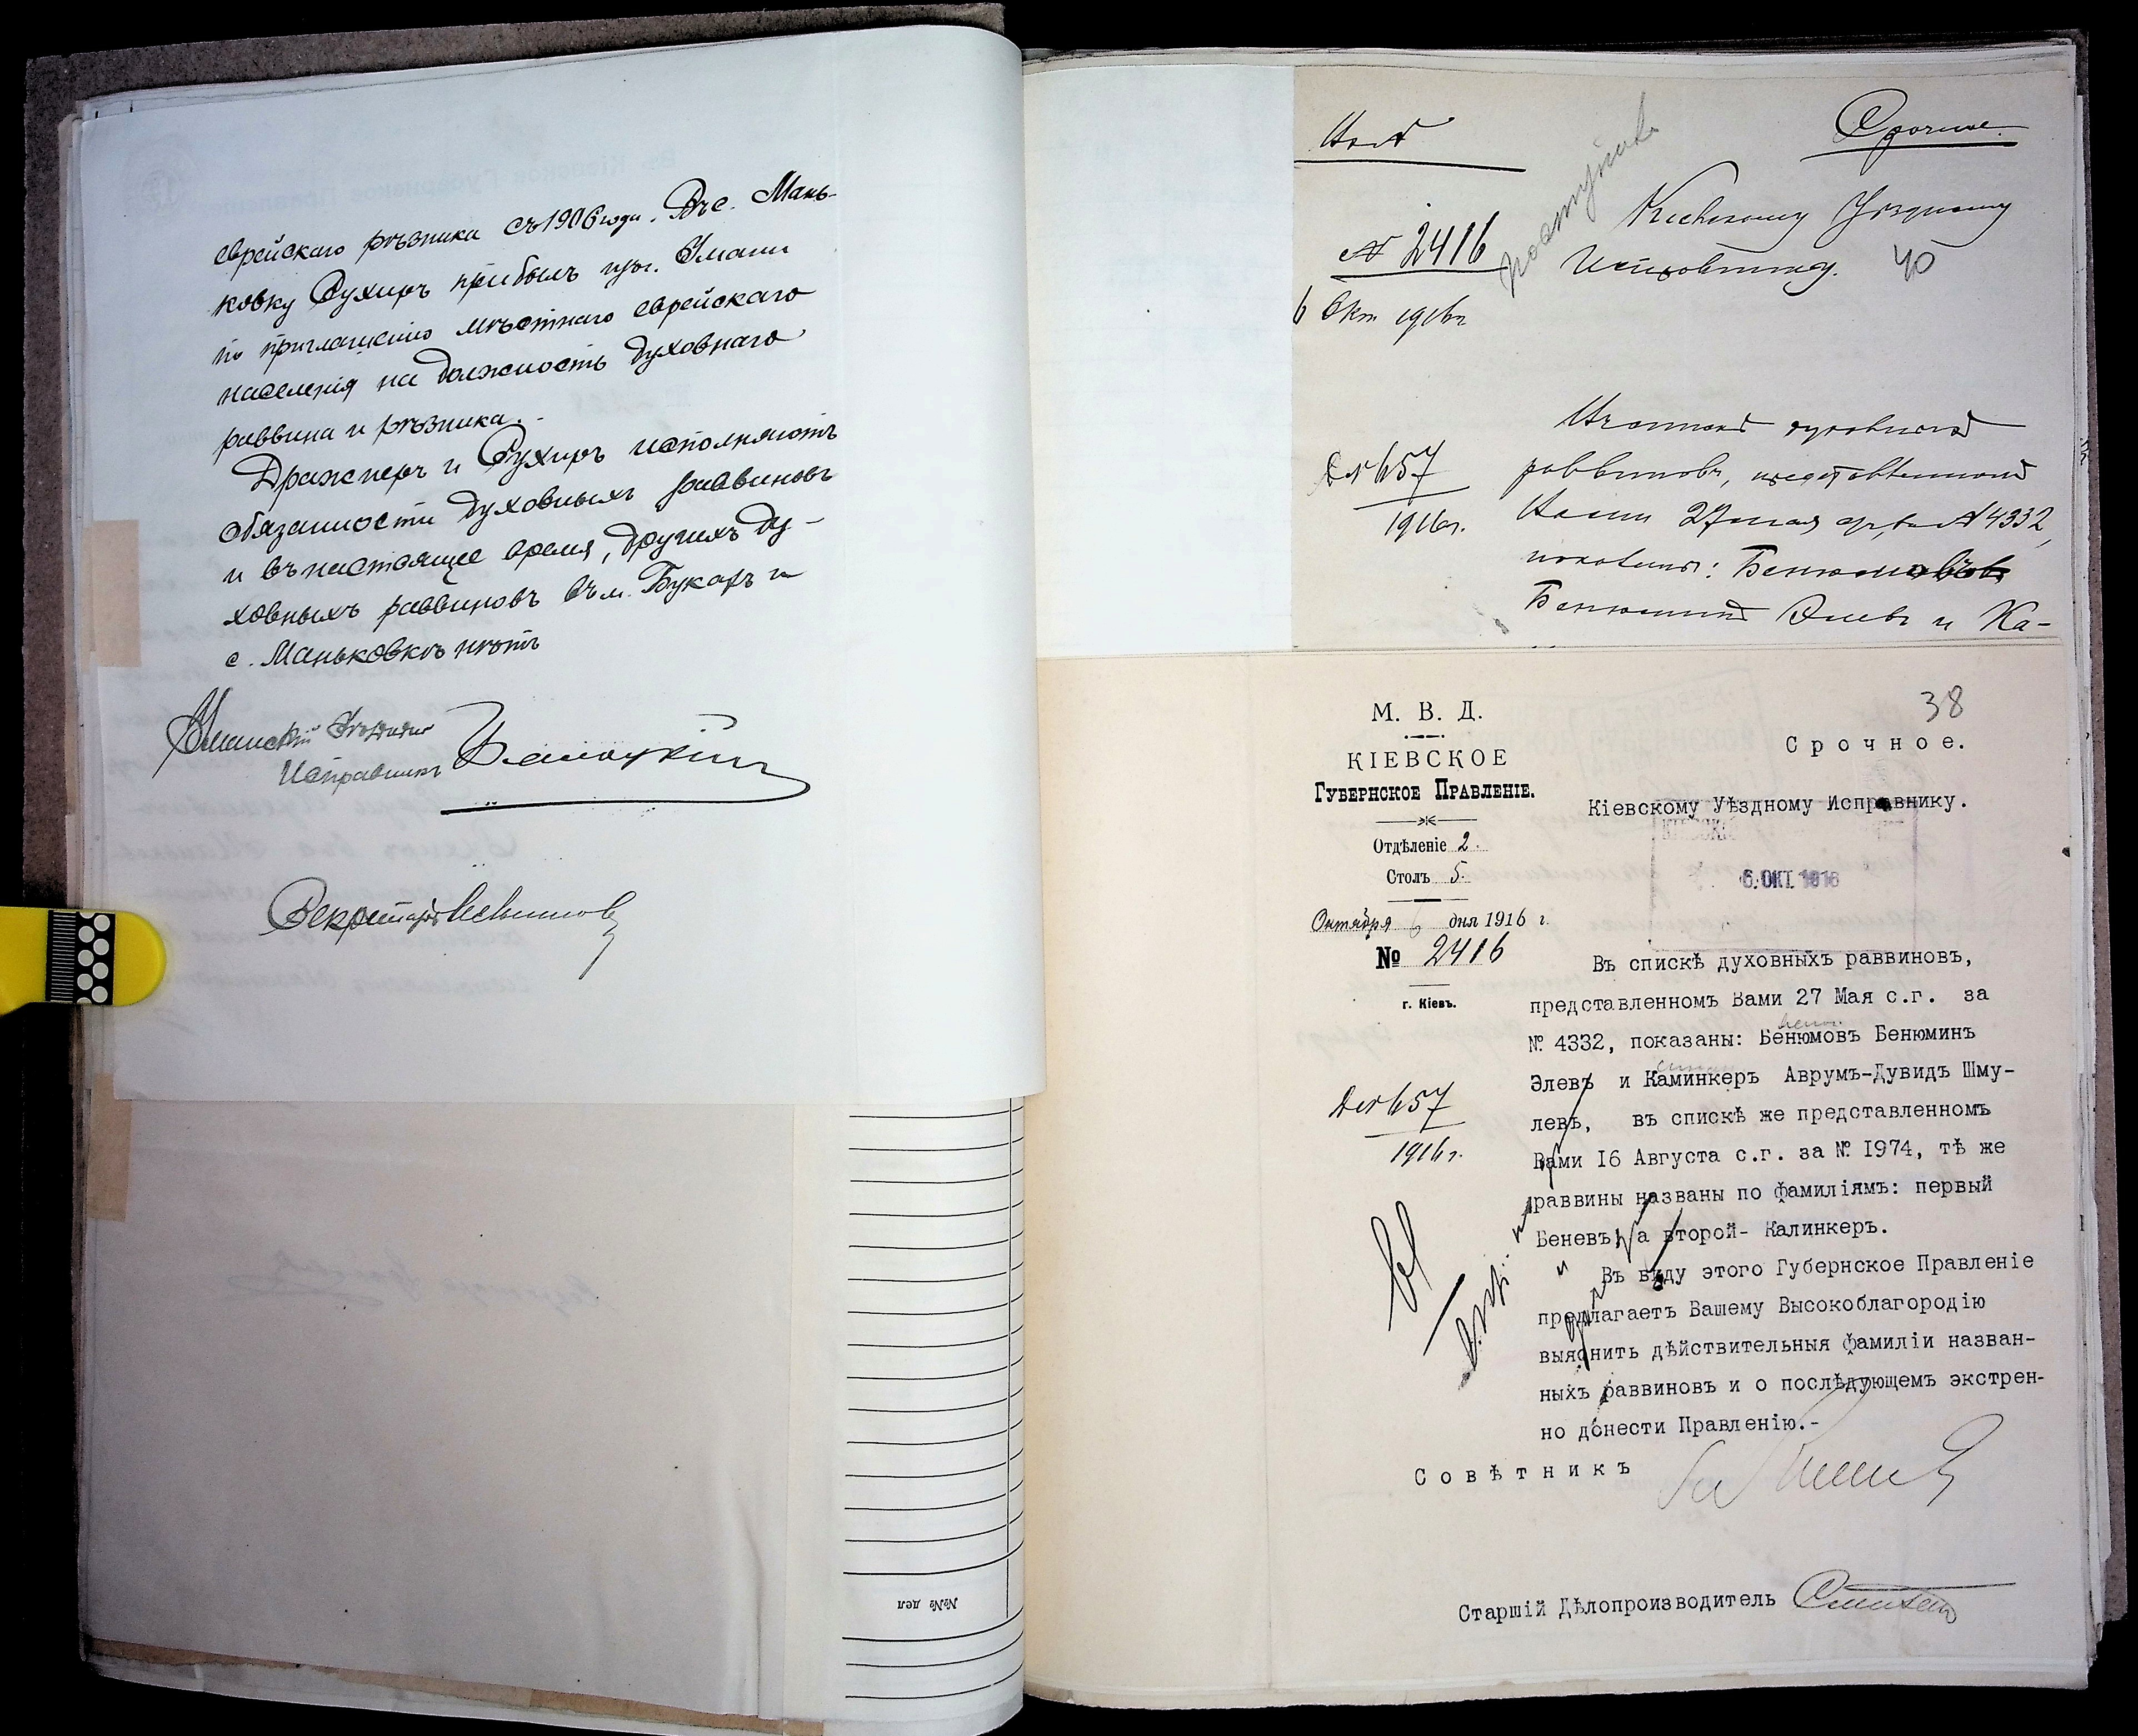 еврейскаго рѣзника съ 1906 года. Въ с. Мань-
ковку Сухиръ прибылъ изъ г. Умани
по приглашенію мѣстнаго еврейскаго
населенія на должность духовнаго
раввина и рѣзника.
Дражнеръ и Сухиръ исполняютъ
обязанности духовныхъ раввиновъ
и въ настоящее время, другихъ ду-
ховныхъ раввиновъ въ м. Букахъ и
с. Маньковкѣ нѣтъ
Уманскій Уѣздный
Исправникъ
Секретарь
Срочное.
№ 2416
Кіевскому Уѣздному
Исправнику. 40
6 Окт 1916 г
духовныхъ
раввиновъ, представленномъ
Вами 27 мая с.г. за № 4332,
показаны: Бенюмовъ
Бенюминъ Элевъ и Ка-
657
1916 г.
38
М. В. Д.
КІЕВСКОЕ
ГУБЕРНСКОЕ ПРАВЛЕНІЕ.
Отдѣленіе 2.
Столъ 5.
Октября 6 дня 1916 г.
№ 2416
г. Кіевъ.
657
1916 г.
Срочное.
Кіевскому Уѣздному Исправнику.
6. ОКТ. 1916
Въ спискѣ духовныхъ раввиновъ,
представленномъ Вами 27 Мая с.г. за
№ 4332, показаны: Бенюмовъ Бенюминъ
Элевъ и Каминкеръ Аврумъ-Дувидъ Шму-
левъ, въ спискѣ же представленномъ
Вами I6 Августа с.г. за № I974, тѣ же
раввины названы по фамиліямъ: первый
Беневъ, а второй- Калинкеръ.
Въ виду этого Губернское Правленіе
предлагаетъ Вашему Высокоблагородію
выяснить дѣйствительныя фамиліи назван-
ныхъ раввиновъ и о послѣдующемъ экстрен-
но донести Правленію.-
Совѣтникъ
Старшій Дѣлопроизводитель
№№ дел